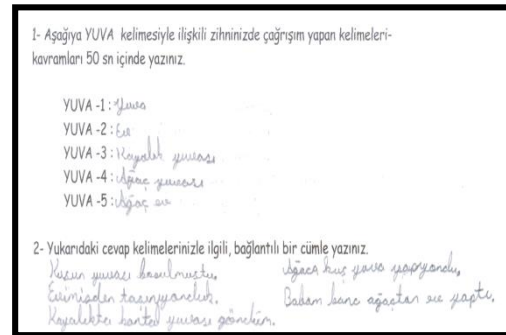 1- Aşağıya YUVA kelimesiyle ilişkili zihninizde çağrışım yapan kelimeleri-
kavramları 50 sn içinde yazınız.
YUVA -1 : Yuva
YUVA -2 : Ev
YUVA -3 : Kayalık yuvası
YUVA -4 : Ağaç yuvası
YUVA -5 : Ağaç ev
2- Yukarıdaki cevap kelimelerinizle ilgili, bağlantılı bir cümle yazınız.
Kuşun yuvası bozulmuştu,
Evimizden taşınıyorduk.
Kayalıkta kartal yuvası gördüm.
Ağaca kuş yuva yapıyordu,
Babam bana ağaçtan ev yaptı.